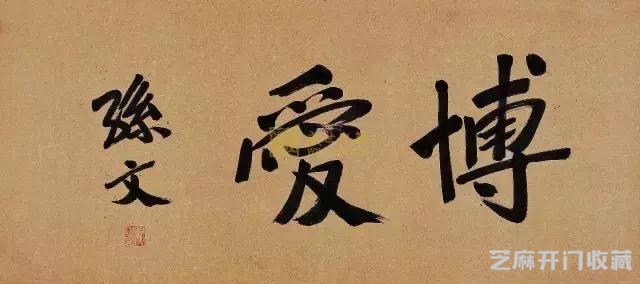 博愛
孫文
芝麻开门收藏